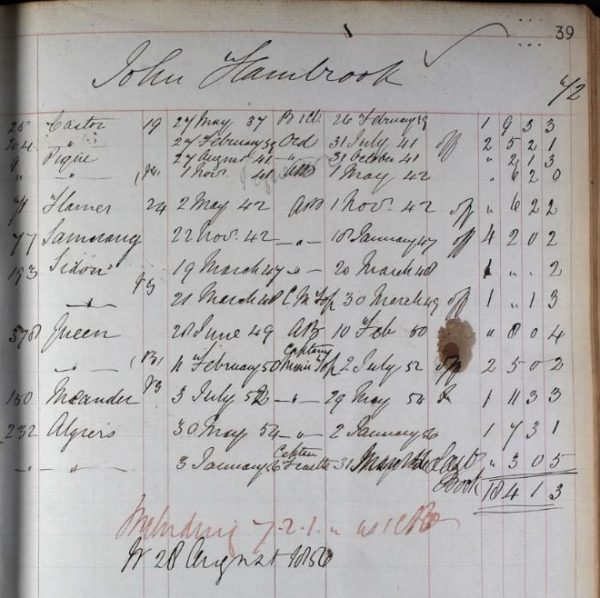 39
John Hambrook
1/2
25 Castor 19 27 May 37 B 1 Cl 26 February 39 1 9 3 3
204 " 27 February 39 Ord 31 July 41 off 2 5 2 1
9 Pique 27 August 41 " 31 October 41 " 2 1 3
" " 1 Novr. 41 AB 1 May 42 " 6 2 0
71 Flamer 24 2 May 42 AB 1 Novr. 42 off " 6 2 2
77 Samarang 22 Novr. 42 " 18 January 47 off 4 2 0 2
193 Sidon 19 March 47 " 20 March 48 1 " " 2
" 21 March 48 C M Top 30 March 49 off 1 " 1 3
578 Queen 28 June 49 AB 10 Feb 50 " 8 0 4
" 11 February 50 Captn Main Top 2 July 52 off 2 5 0 2
180 Meander 3 July 52 " 29 May 54 1 11 3 3
232 Algiers 30 May 54 " 2 January 56 1 7 3 1
" " 3 January 56 Captn 31 May 56 Last Book " 3 0 5
18 4 1 3
Including 7.2.1. " as 1 Cl B
28 August 1856